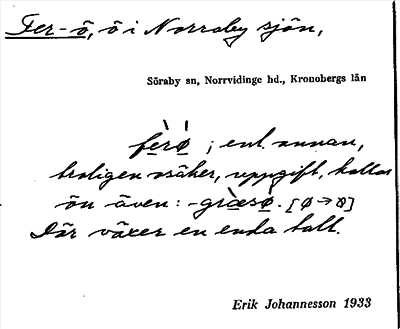 Fer-ö, ö i Norraby sjön,
Söraby sn, Norrvidinge hd., Kronobergs län
fè̱rø̱̀ ; enl. annan,
troligen osäker, uppgift, kallas
ön även: -græ̱̀sø̱̀. [ø→ꝏ]
Där växer en enda tall.
Erik Johannesson 1933